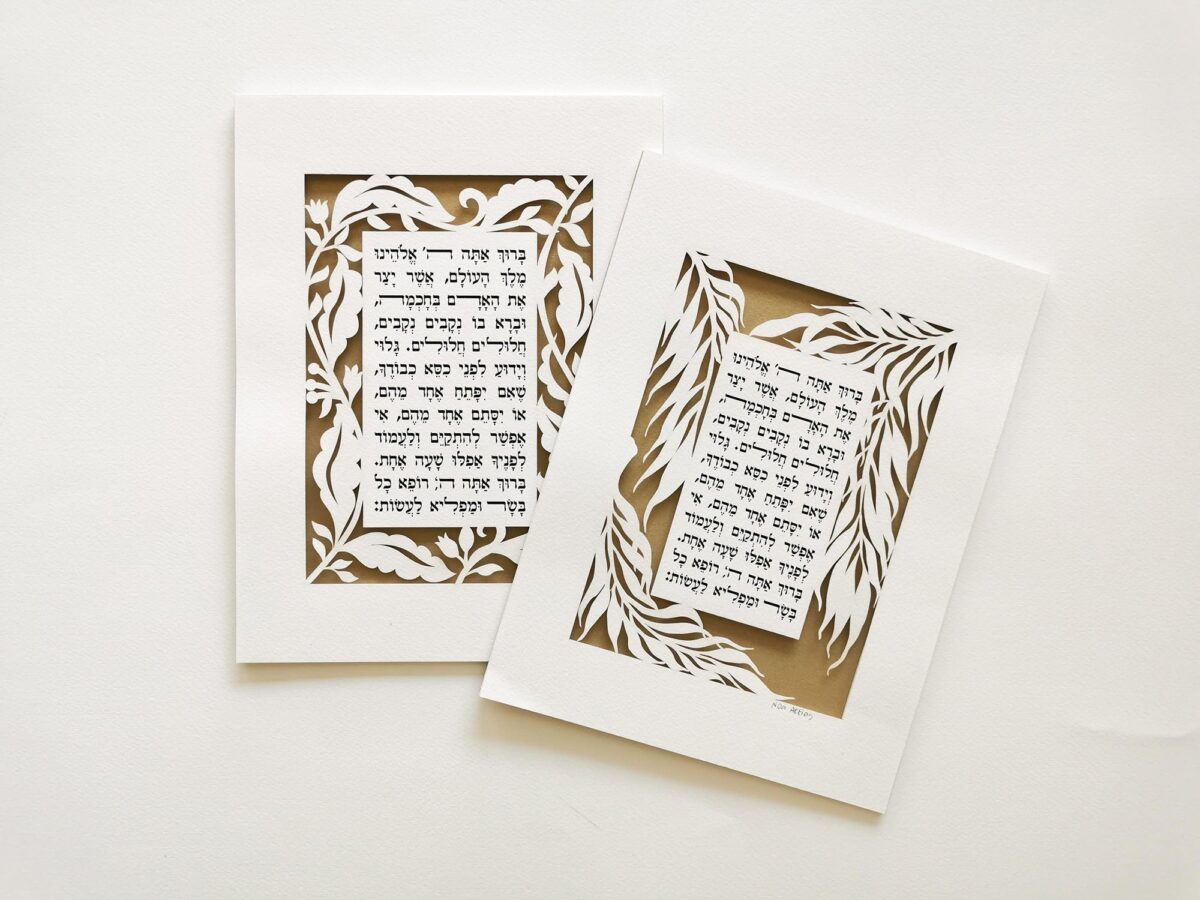 בָּרוּךְ אַתָּה ה׳ אֱלֹהֵינוּ
מֶלֶךְ הָעוֹלָם, אֲשֶׁר יָצַר
אֶת הָאָדָם בְּחָכְמָה,
וּבָרָא בוֹ נְקָבִים נְקָבִים,
חֲלוּלִים חֲלוּלִים. גָּלוּי
וְיָדוּעַ לִפְנֵי כִסֵּא כְבוֹדֶךָ,
שֶׁאִם יִפָּתֵחַ אֶחָד מֵהֶם,
אוֹ יִסָּתֵם אֶחָד מֵהֶם, אִי
אֶפְשַׁר לְהִתְקַיֵּם וְלַעֲמוֹד
לְפָנֶיךָ אֲפִלּוּ שָׁעָה אֶחָת.
בָּרוּךְ אַתָּה ה׳; רוֹפֵא כָל
בָּשָׂר וּמַפְלִיא לַעֲשׂוֹת:
בָּרוּךְ אַתָּה ה׳ אֱלֹהֵינוּ
מֶלֶךְ הָעוֹלָם, אֲשֶׁר יָצַר
אֶת הָאָדָם בְּחָכְמָה,
וּבָרָא בוֹ נְקָבִים נְקָבִים,
חֲלוּלִים חֲלוּלִים. גָּלוּי
וְיָדוּעַ לִפְנֵי כִסֵּא כְבוֹדֶךָ,
שֶׁאִם יִפָּתֵחַ אֶחָד מֵהֶם,
אוֹ יִסָּתֵם אֶחָד מֵהֶם, אִי
אֶפְשַׁר לְהִתְקַיֵּם וְלַעֲמוֹד
לְפָנֶיךָ אֲפִלּוּ שָׁעָה אֶחָת.
בָּרוּךְ אַתָּה ה׳; רוֹפֵא כָל
בָּשָׂר וּמַפְלִיא לַעֲשׂוֹת: